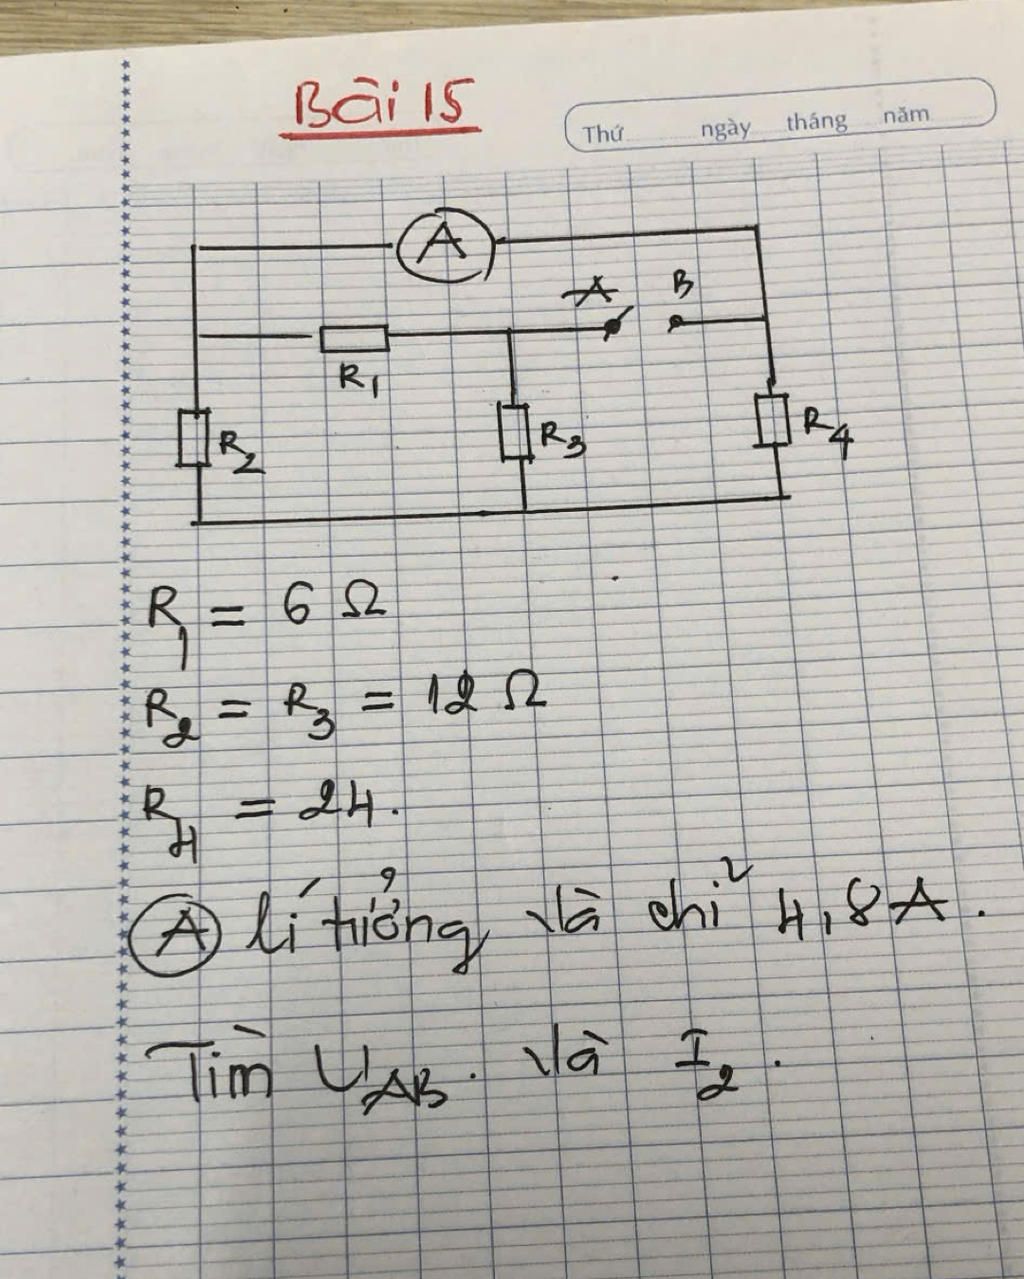 Bài 15
Thứ ngày tháng năm
A
A B
R1
R2 R3 R4
R1 = 6 Ω
R2 = R3 = 12 Ω
R4 = 24.
A lí tưởng và chỉ 4,8A.
Tìm UAB. và I2.